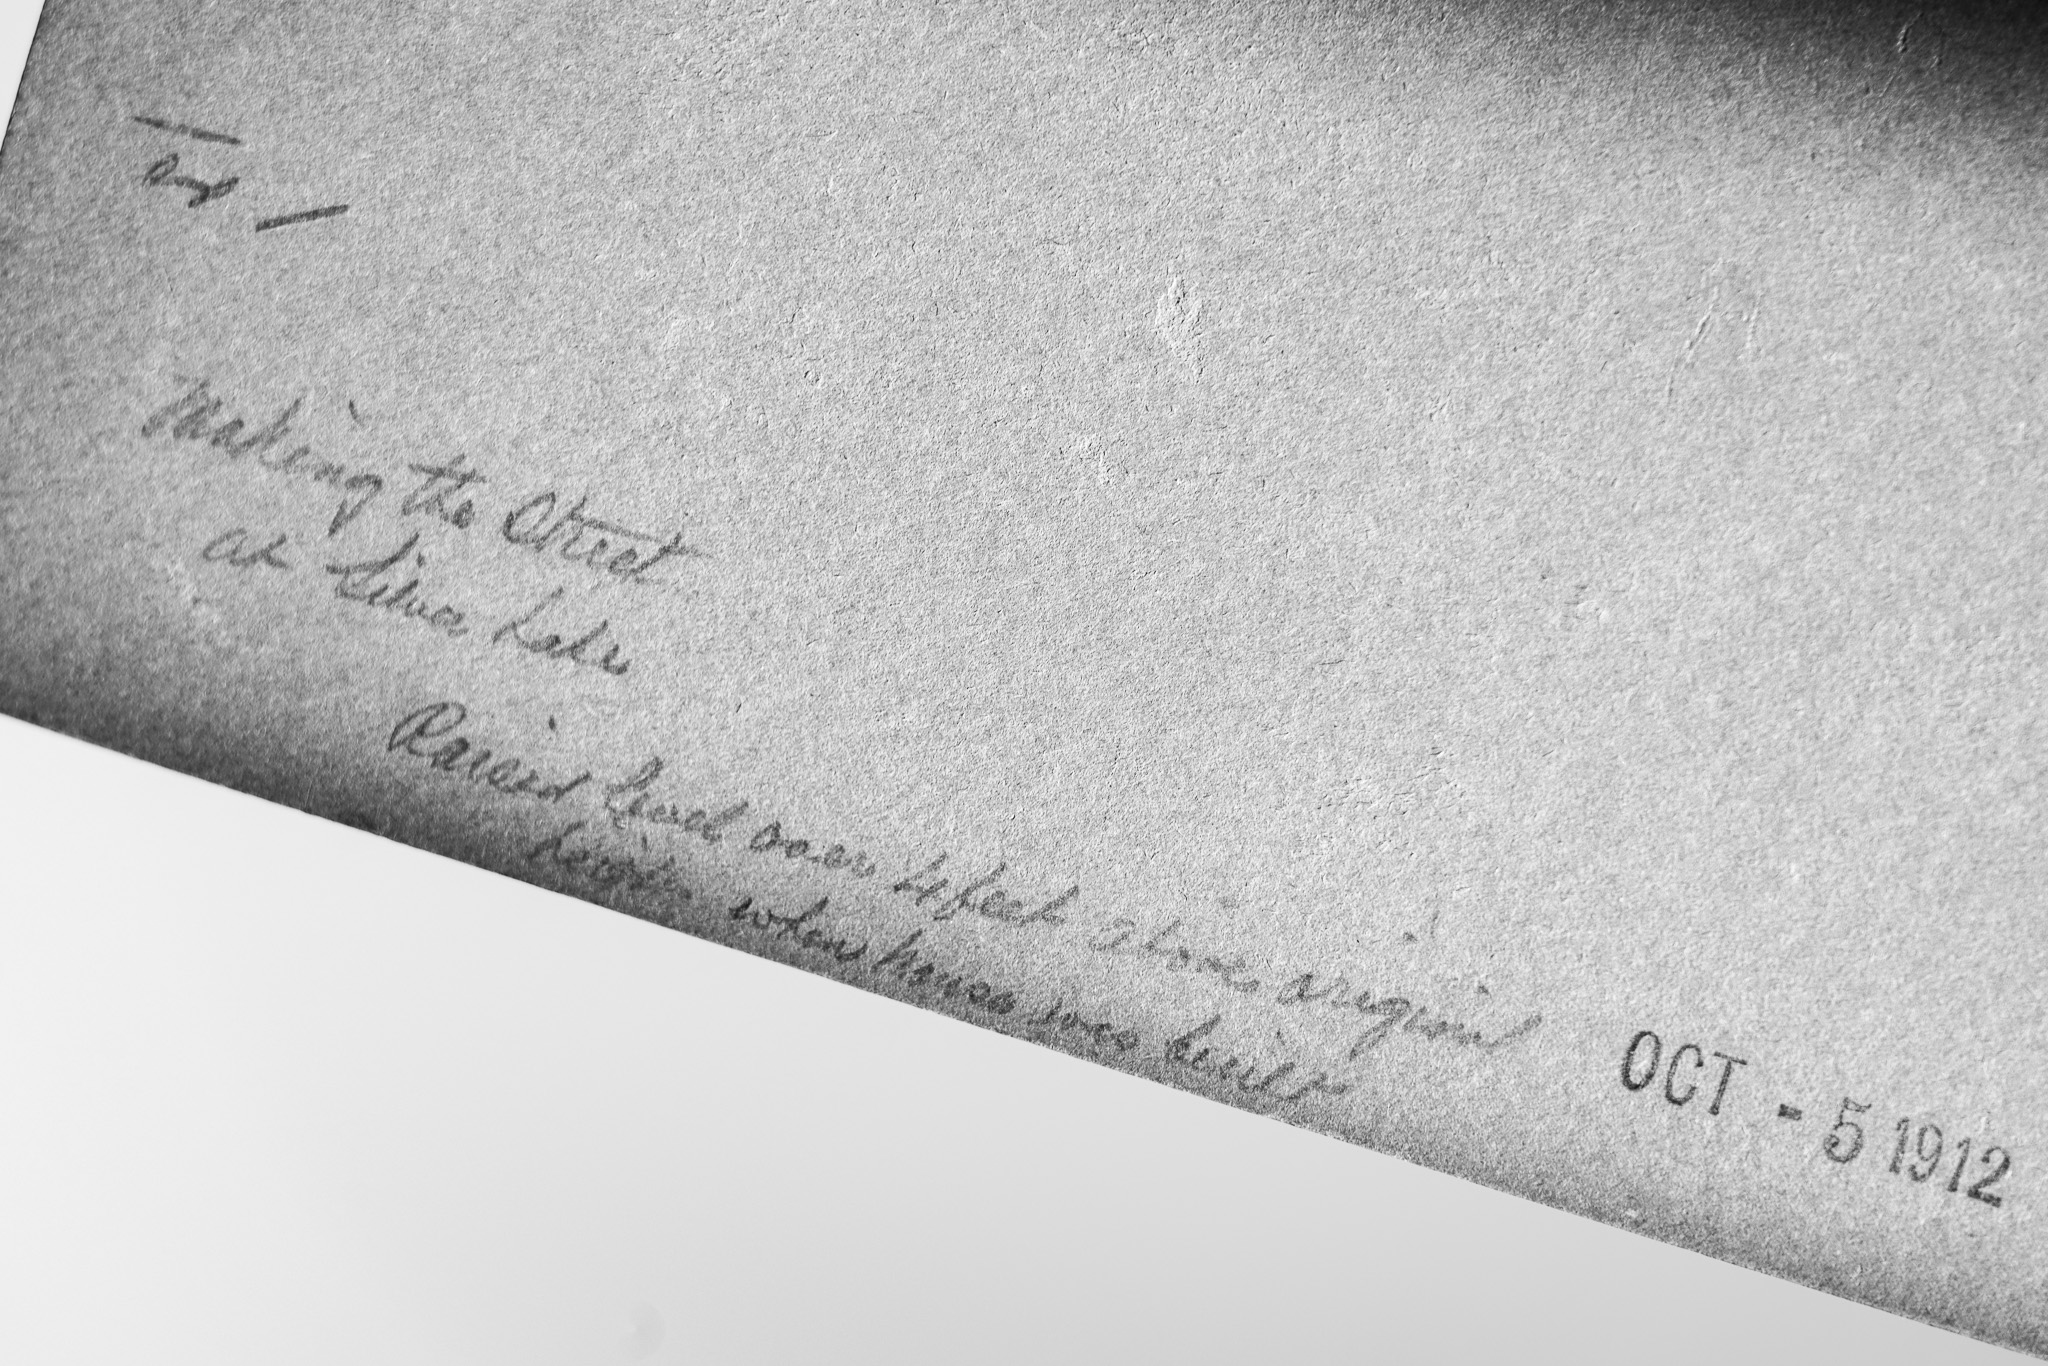 Making the Street
at Silver Lake
Raised level over 4 feet above original
when house was built
OCT - 5 1912